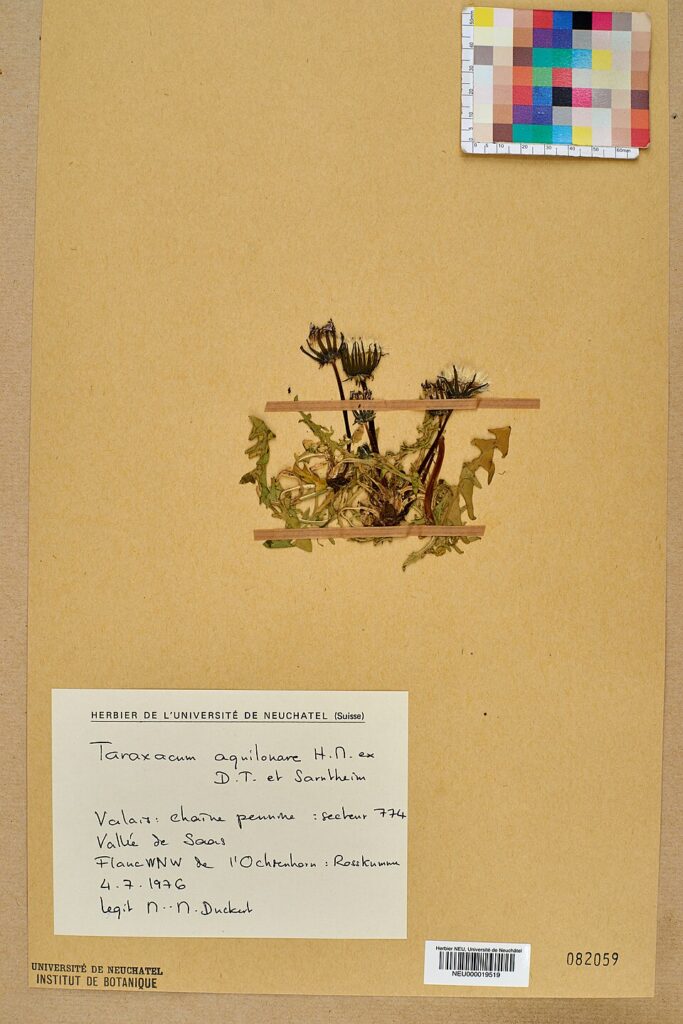 HERBIER DE L'UNIVERSITÉ DE NEUCHATEL (Suisse)
Taraxacum aquilonare H.M. ex
D.T. et Sarntheim
Valais: chaîne pennine : secteur 774
Vallée de Saas
Flanc WNW de l'Ochsenhorn : Rosskumme
4.7.1976
legit M.-M. Duckert
UNIVERSITÉ DE NEUCHATEL
INSTITUT DE BOTANIQUE
Herbier NEU, Université de Neuchâtel
NEU000019519
082059